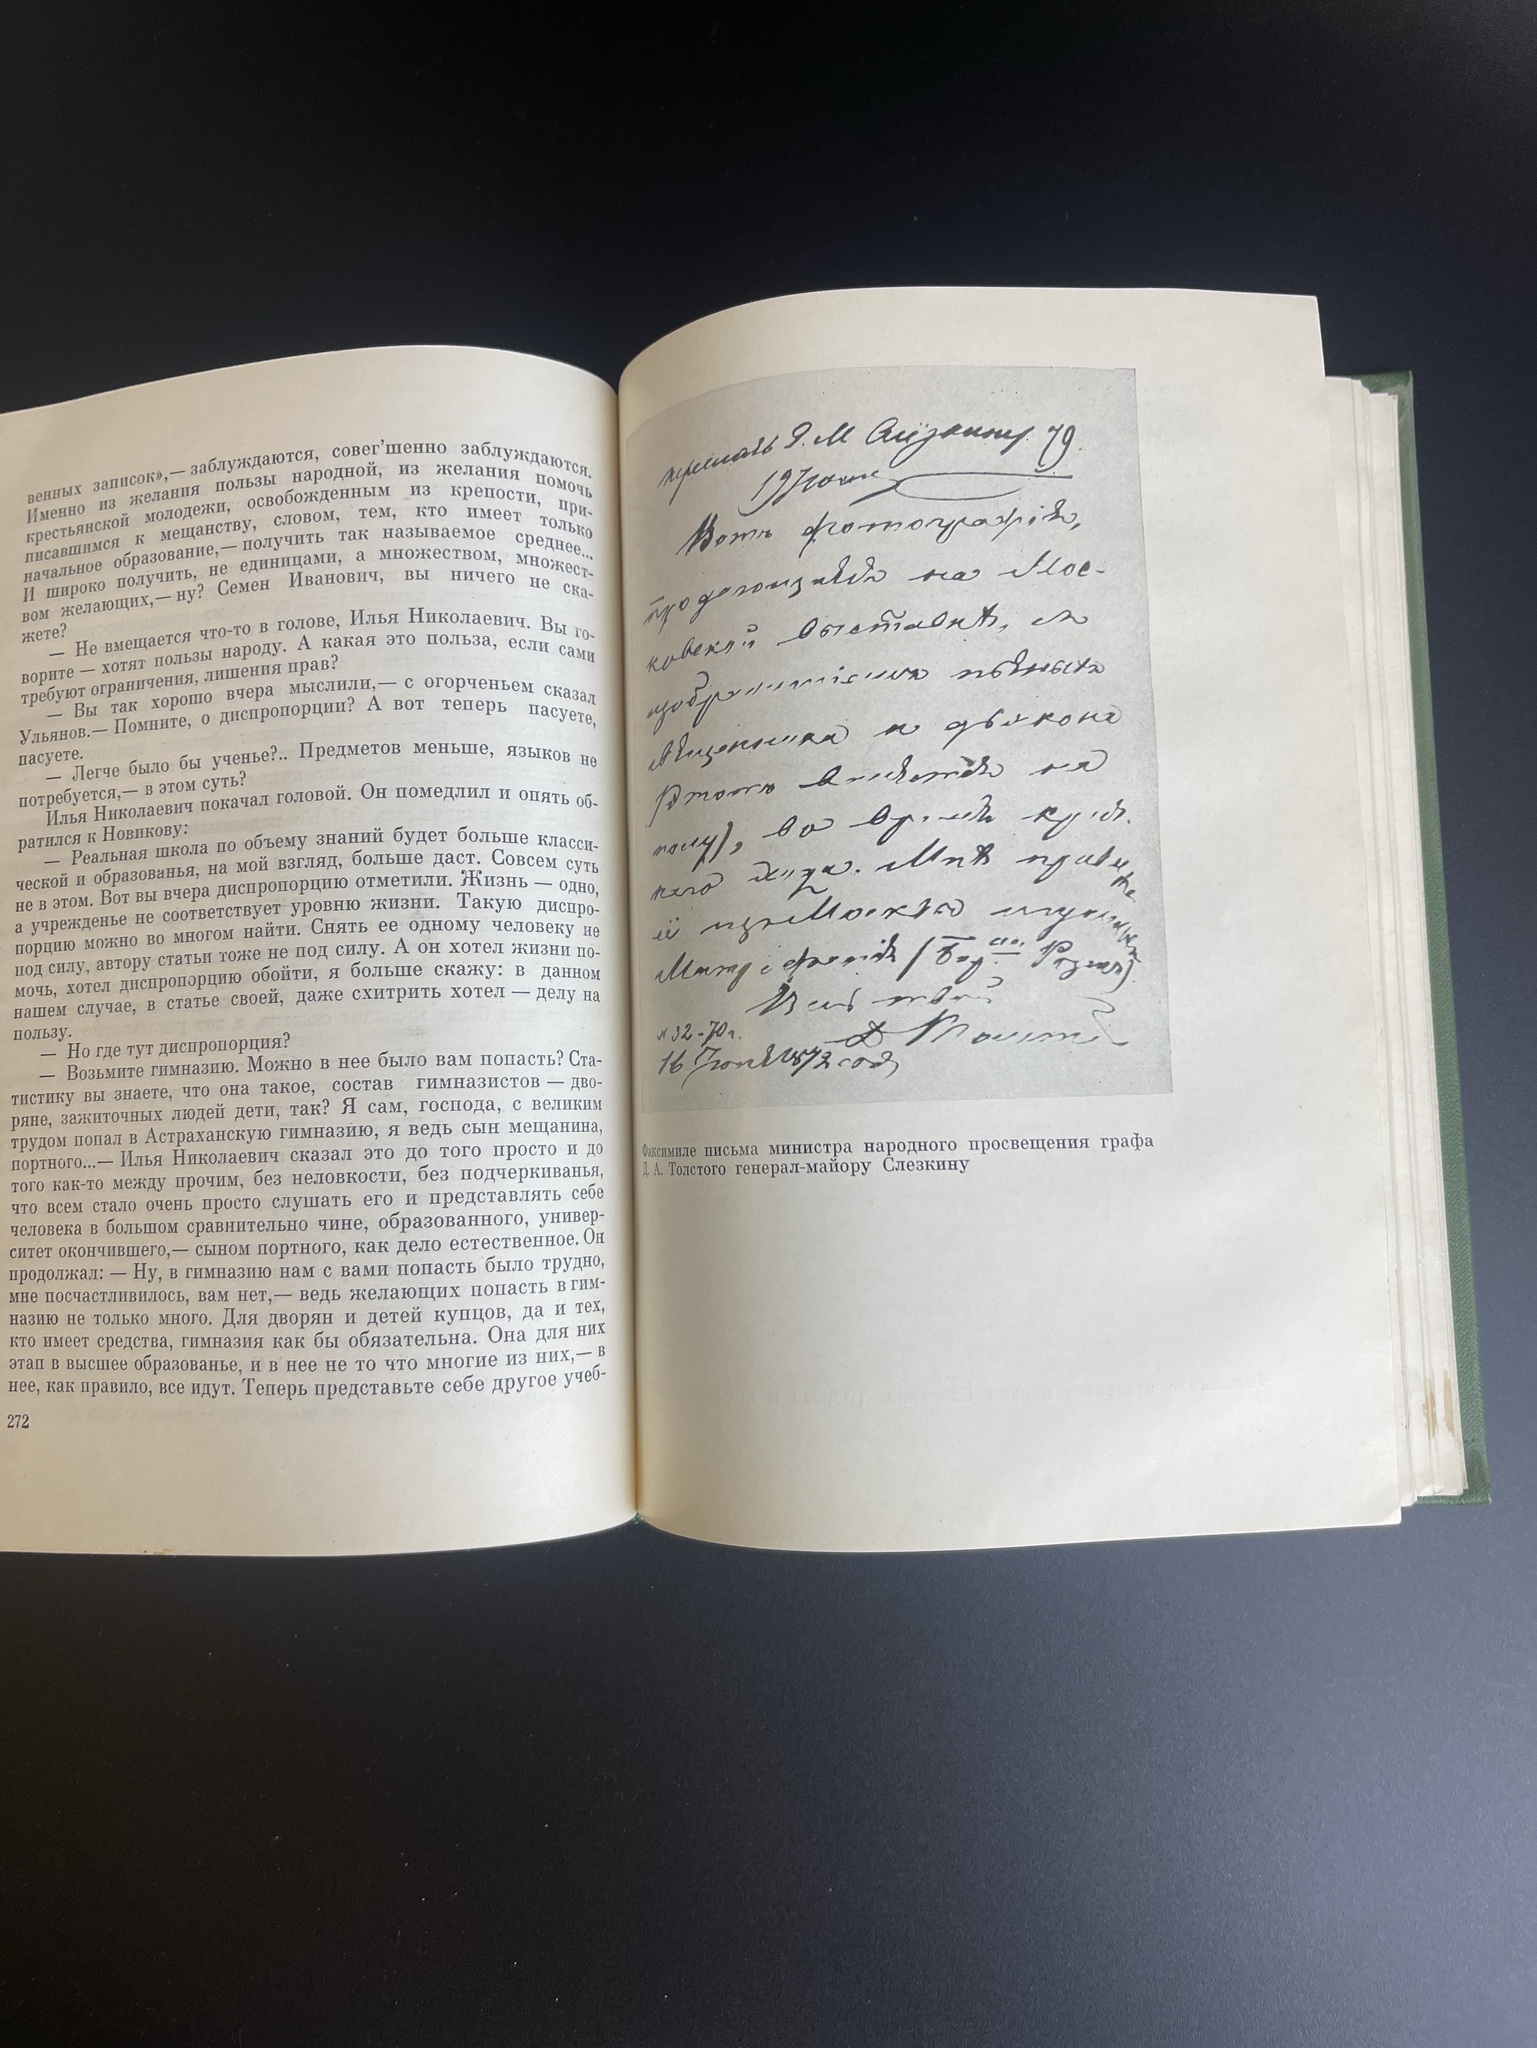 венных записок»,— заблуждаются, совег'шенно заблуждаются.
Именно из желания пользы народной, из желания помочь
крестьянской молодежи, освобожденным из крепости, при-
писавшимся к мещанству, словом, тем, кто имеет только
начальное образование,— получить так называемое среднее...
И широко получить, не единицами, а множеством, множест-
вом желающих,— ну? Семен Иванович, вы ничего не ска-
жете?
— Не вмещается что-то в голове, Илья Николаевич. Вы го-
ворите — хотят пользы народу. А какая это польза, если сами
требуют ограничения, лишения прав?
— Вы так хорошо вчера мыслили,— с огорченьем сказал
Ульянов.— Помните, о диспропорции? А вот теперь пасуете,
пасуете.
— Легче было бы ученье?.. Предметов меньше, языков не
потребуется,— в этом суть?
Илья Николаевич покачал головой. Он помедлил и опять об-
ратился к Новикову:
— Реальная школа по объему знаний будет больше класси-
ческой и образованья, на мой взгляд, больше даст. Совсем суть
не в этом. Вот вы вчера диспропорцию отметили. Жизнь — одно,
а учрежденье не соответствует уровню жизни. Такую диспро-
порцию можно во многом найти. Снять ее одному человеку не
под силу, автору статьи тоже не под силу. А он хотел жизни по-
мочь, хотел диспропорцию обойти, я больше скажу: в данном
нашем случае, в статье своей, даже схитрить хотел — делу на
пользу.
— Но где тут диспропорция?
— Возьмите гимназию. Можно в нее было вам попасть? Ста-
тистику вы знаете, что она такое, состав гимназистов — дво-
ряне, зажиточных людей дети, так? Я сам, господа, с великим
трудом попал в Астраханскую гимназию, я ведь сын мещанина,
портного...— Илья Николаевич сказал это до того просто и до
того как-то между прочим, без неловкости, без подчеркиванья,
что всем стало очень просто слушать его и представлять себе
человека в большом сравнительно чине, образованного, универ-
ситет окончившего,— сыном портного, как дело естественное. Он
продолжал: — Ну, в гимназию нам с вами попасть было трудно,
мне посчастливилось, вам нет,— ведь желающих попасть в гим-
назию не только много. Для дворян и детей купцов, да и тех,
кто имеет средства, гимназия как бы обязательна. Она для них
этап в высшее образованье, и в нее не то что многие из них,— в
нее, как правило, все идут. Теперь представьте себе другое учеб-
272
79.
19 Июня
Вотъ фотографія,
продающаяся на Мос-
ковской выставкѣ, съ
изображеніемъ пьяныхъ
священника и дьякона
во время крест-
наго хода. Мнѣ
изъ Москвы
Весь твой
Д. Толстой
№ 32-70 г.
16 Іюня 1872 года
Факсимиле письма министра народного просвещения графа
Д. А. Толстого генерал-майору Слезкину